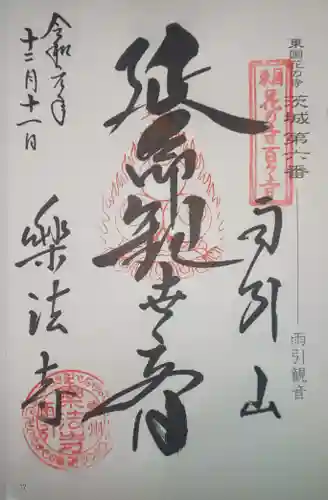 東国花の寺 茨城 第六番
雨引観音
東国花の寺百ヶ寺
雨引山
延命観世音
令和元年
十二月十一日
樂法寺